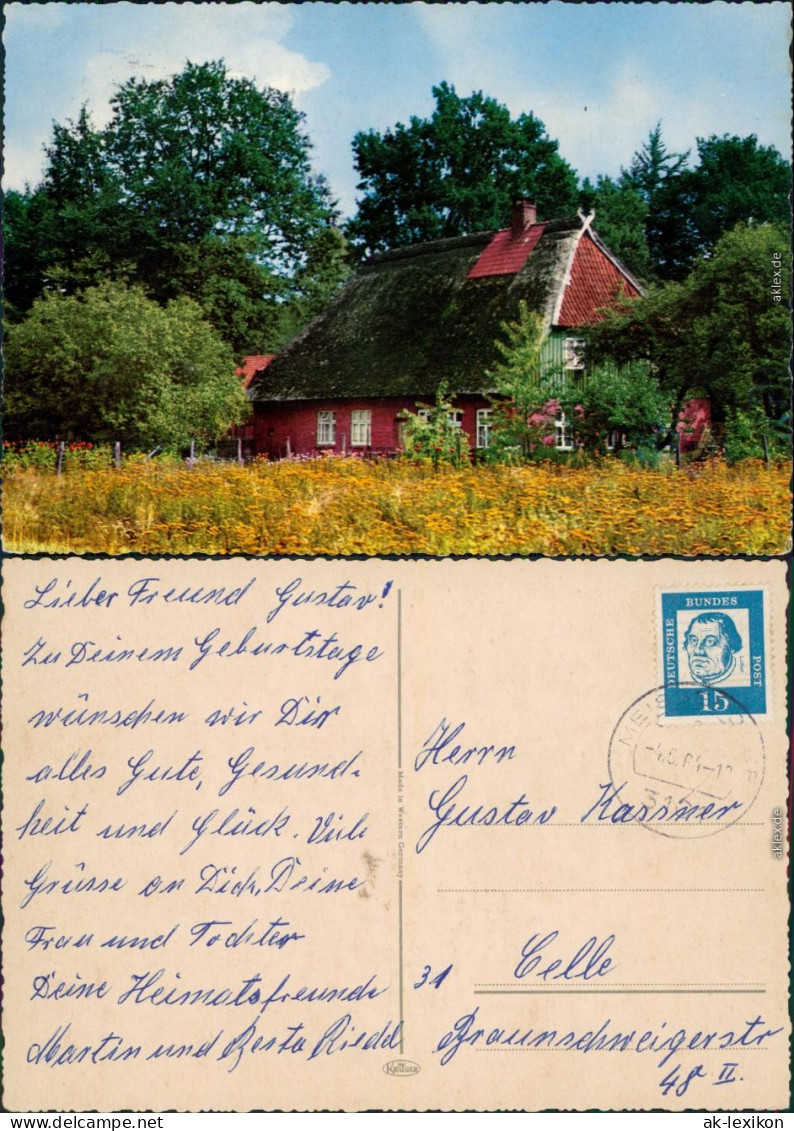 aklex.de
Lieber Freund Gustav!
Zu Deinem Geburtstage
wünschen wir Dir
alles Gute, Gesund-
heit und Glück. Viele
Grüsse an Dich, Deine
Frau und Tochter
Deine Heimatsfreunde
Martin und Berta Riedel
Made in Western Germany
Krüger
DEUTSCHE
BUNDES
POST
15
Herrn
Gustav Kassner
31 Celle
Braunschweigerstr
48 II.
aklex.de
ak-lexikon
www.ak-lexikon.com